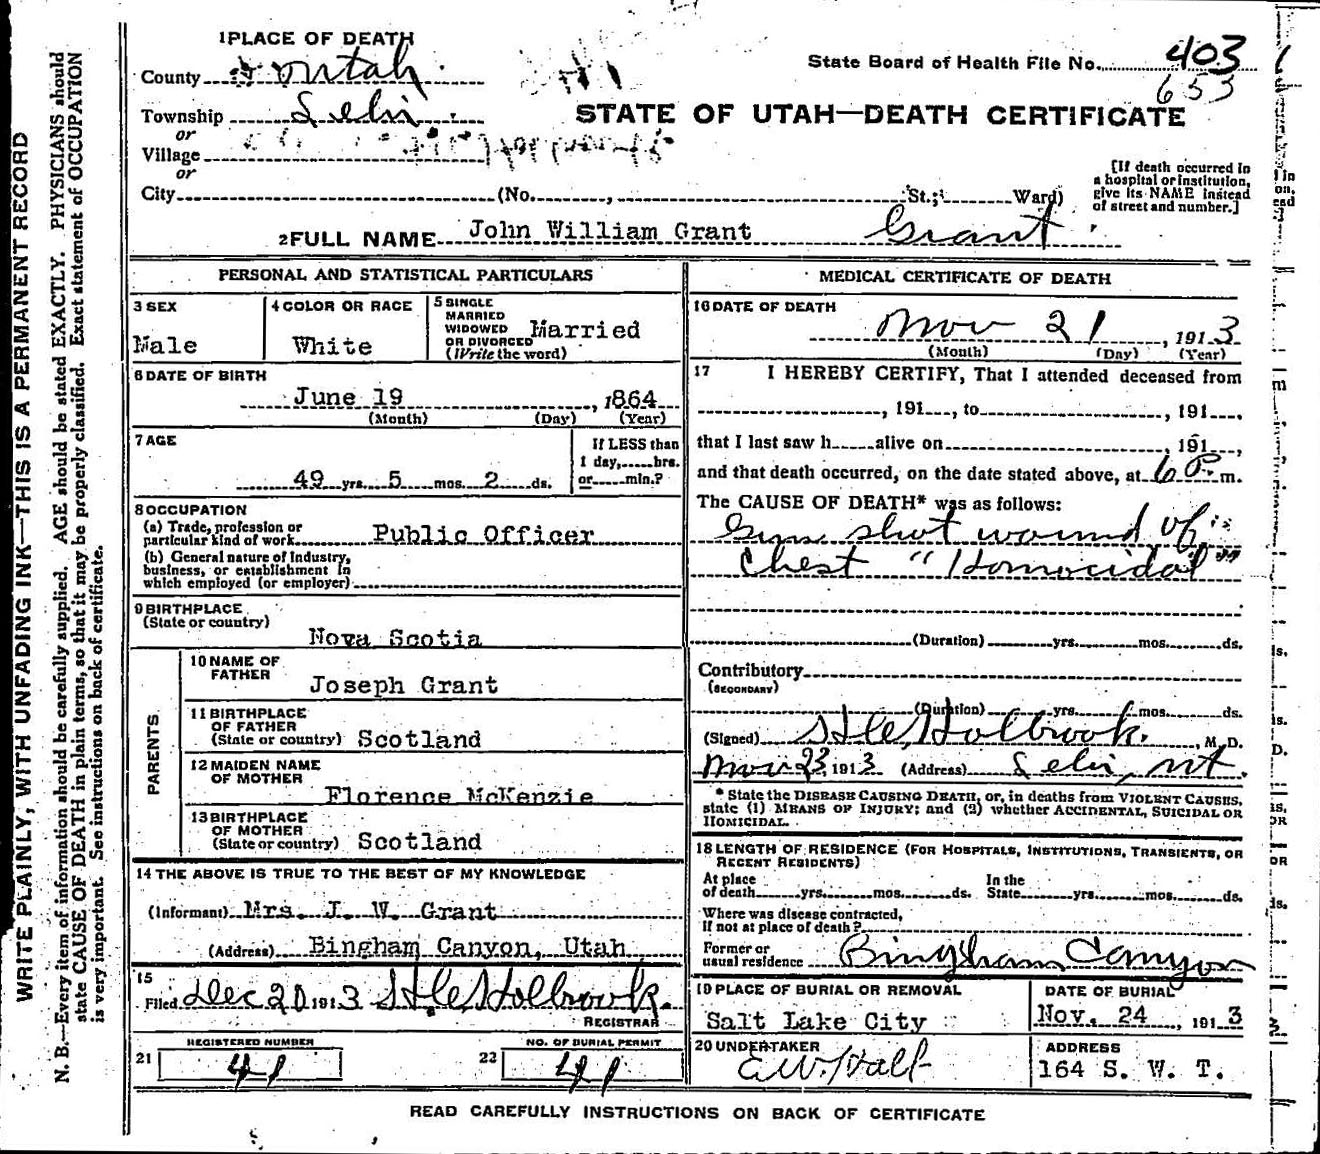 WRITE PLAINLY, WITH UNFADING INK—THIS IS A PERMANENT RECORD
N. B.—Every item of information should be carefully supplied. AGE should be stated EXACTLY. PHYSICIANS should
state CAUSE OF DEATH in plain terms, so that it may be properly classified. Exact statement of OCCUPATION
is very important. See instructions on back of certificate.
1 PLACE OF DEATH
County
Township Lehi
or
Village
or
City (No. , St.; Ward)
State Board of Health File No. 403
653
STATE OF UTAH—DEATH CERTIFICATE
[If death occurred in
a hospital or institution,
give its NAME instead
of street and number.]
2 FULL NAME John William Grant Grant
PERSONAL AND STATISTICAL PARTICULARS
3 SEX
Male
4 COLOR OR RACE
White
5 SINGLE
MARRIED
WIDOWED
OR DIVORCED
(Write the word)
Married
6 DATE OF BIRTH
June 19 , 1864
(Month) (Day) (Year)
7 AGE
49 yrs. 5 mos. 2 ds.
If LESS than
1 day, hrs.
or min.?
8 OCCUPATION
(a) Trade, profession or
particular kind of work Public Officer
(b) General nature of Industry,
business, or establishment in
which employed (or employer)
9 BIRTHPLACE
(State or country)
Nova Scotia
PARENTS
10 NAME OF
FATHER
Joseph Grant
11 BIRTHPLACE
OF FATHER
(State or country) Scotland
12 MAIDEN NAME
OF MOTHER
Florence McKenzie
13 BIRTHPLACE
OF MOTHER
(State or country) Scotland
14 THE ABOVE IS TRUE TO THE BEST OF MY KNOWLEDGE
(Informant) Mrs. J. W. Grant
(Address) Bingham Canyon, Utah
15
Filed Dec 20 1913 Holbrook.
REGISTRAR
21
REGISTERED NUMBER
41
22
NO. OF BURIAL PERMIT
41
MEDICAL CERTIFICATE OF DEATH
16 DATE OF DEATH
Nov 21 , 1913
(Month) (Day) (Year)
17 I HEREBY CERTIFY, That I attended deceased from
, 191 , to , 191 ,
that I last saw h alive on 191 ,
and that death occurred, on the date stated above, at 6 P. m.
The CAUSE OF DEATH* was as follows:
Gun shot wound of
Chest "Homocidal"
(Duration) yrs. mos. ds.
Contributory
(SECONDARY)
(Duration) yrs. mos. ds.
(Signed) Holbrook. , M. D.
Nov 23, 1913 (Address) Lehi, Ut.
* State the DISEASE CAUSING DEATH, or, in deaths from VIOLENT CAUSES,
state (1) MEANS OF INJURY; and (2) whether ACCIDENTAL, SUICIDAL OR
HOMICIDAL.
18 LENGTH OF RESIDENCE (FOR HOSPITALS, INSTITUTIONS, TRANSIENTS, OR
RECENT RESIDENTS)
At place
of death yrs. mos. ds. In the
State yrs. mos. ds.
Where was disease contracted,
If not at place of death?
Former or
usual residence Bingham Canyon
19 PLACE OF BURIAL OR REMOVAL
Salt Lake City
DATE OF BURIAL
Nov. 24 , 1913
20 UNDERTAKER
E.W. Hall
ADDRESS
164 S. W. T.
READ CAREFULLY INSTRUCTIONS ON BACK OF CERTIFICATE